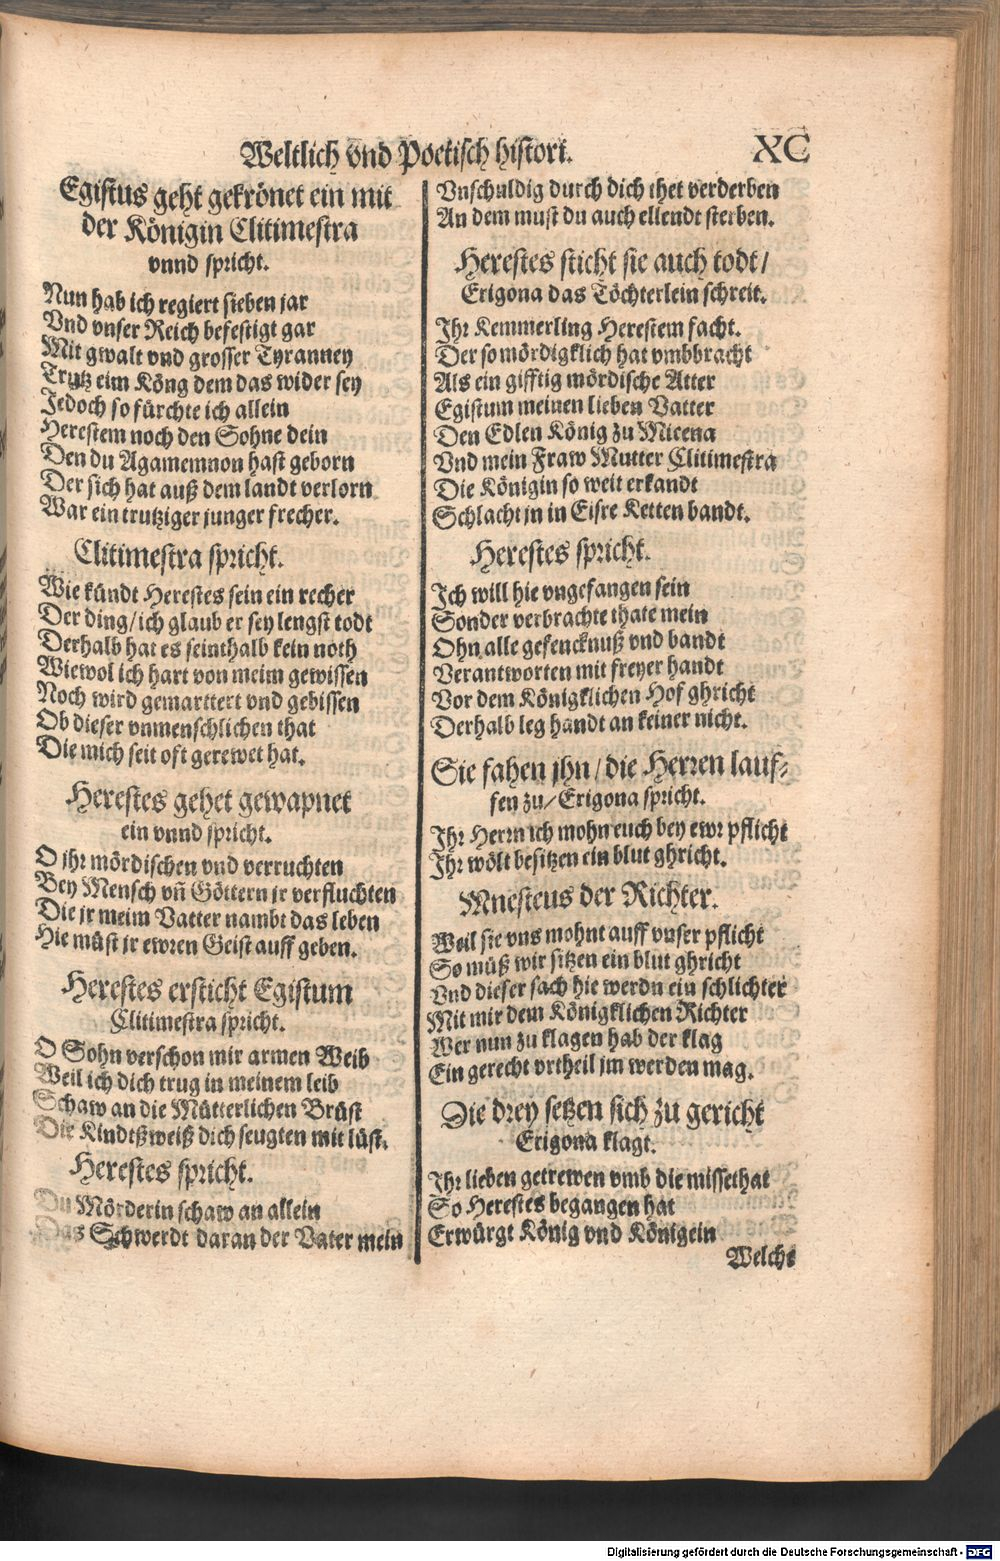 Weltlich vnd Poetisch histori. XC
Egistus geht gekrönet ein mit
der Königin Clitimestra
vnnd spricht.
Nun hab ich regiert sieben jar
Vnd vnser Reich befestigt gar
Mit gwalt vnd grosser Tyranney
Trutz eim Köng dem das wider sey
Jedoch so fürchte ich allein
Herestem noch den Sohne dein
Den du Agamemnon hast geborn
Der sich hat auß dem landt verlorn
War ein trutziger junger frecher.
Clitimestra spricht.
Wie kündt Herestes sein ein recher
Der ding/ ich glaub er sey lengst todt
Derhalb hat es seinthalb kein noth
Wiewol ich hart von meim gewissen
Noch wird gemarttert vnd gebissen
Ob dieser vnmenschlichen that
Die mich seit oft gerewet hat.
Herestes gehet gewapnet
ein vnnd spricht.
O jhr mördischen vnd verruchten
Bey Mensch vñ Göttern jr verfluchten
Die jr meim Vatter nambt das leben
Hie müst jr ewren Geist auff geben.
Herestes ersticht Egistum
Clitimestra spricht.
O Sohn verschon mir armen Weib
Weil ich dich trug in meinem leib
Schaw an die Mütterlichen Brüst
Die Kindtßweiß dich seugten mit lüst.
Herestes spricht.
Du Mörderin schaw an allein
Das Schwerdt daran der Vater mein
Vnschuldig durch dich thet verderben
An dem must du auch ellendt sterben.
Herestes sticht sie auch todt/
Erigona das Töchterlein schreit.
Ihr Kemmerling Herestem facht.
Der so mördigklich hat vmbbracht
Als ein gifftig mördische Atter
Egistum meinen lieben Vatter
Den Edlen König zu Micena
Vnd mein Fraw Mutter Clitimestra
Die Königin so weit erkandt
Schlacht jn in Eisre Ketten bandt.
Herestes spricht.
Ich will hie vngefangen sein
Sonder verbrachte thate mein
Ohn alle gefencknuß vnd bandt
Verantworten mit freyer handt
Vor dem Königklichen Hof ghricht
Derhalb leg handt an keiner nicht.
Sie fahen jhn/ die Herren lauf⸗
fen zu/ Erigona spricht.
Ihr Herrn ich mohn euch bey ewr pflicht
Ihr wölt besitzen ein blut ghricht.
Mnesteus der Richter.
Weil sie vns mohnt auff vnser pflicht
So müß wir sitzen ein blut ghricht
Vnd dieser sach hie werdn ein schlichter
Mit mir dem Königklichen Richter
Wer nun zu klagen hab der klag
Ein gerecht vrtheil jm werden mag.
Die drey setzen sich zu gericht
Erigona klagt.
Ihr lieben getrewen vmb die missethat
So Herestes begangen hat
Erwürgt König vnd Königein
Welche
Digitalisierung gefördert durch die Deutsche Forschungsgemeinschaft - DFG